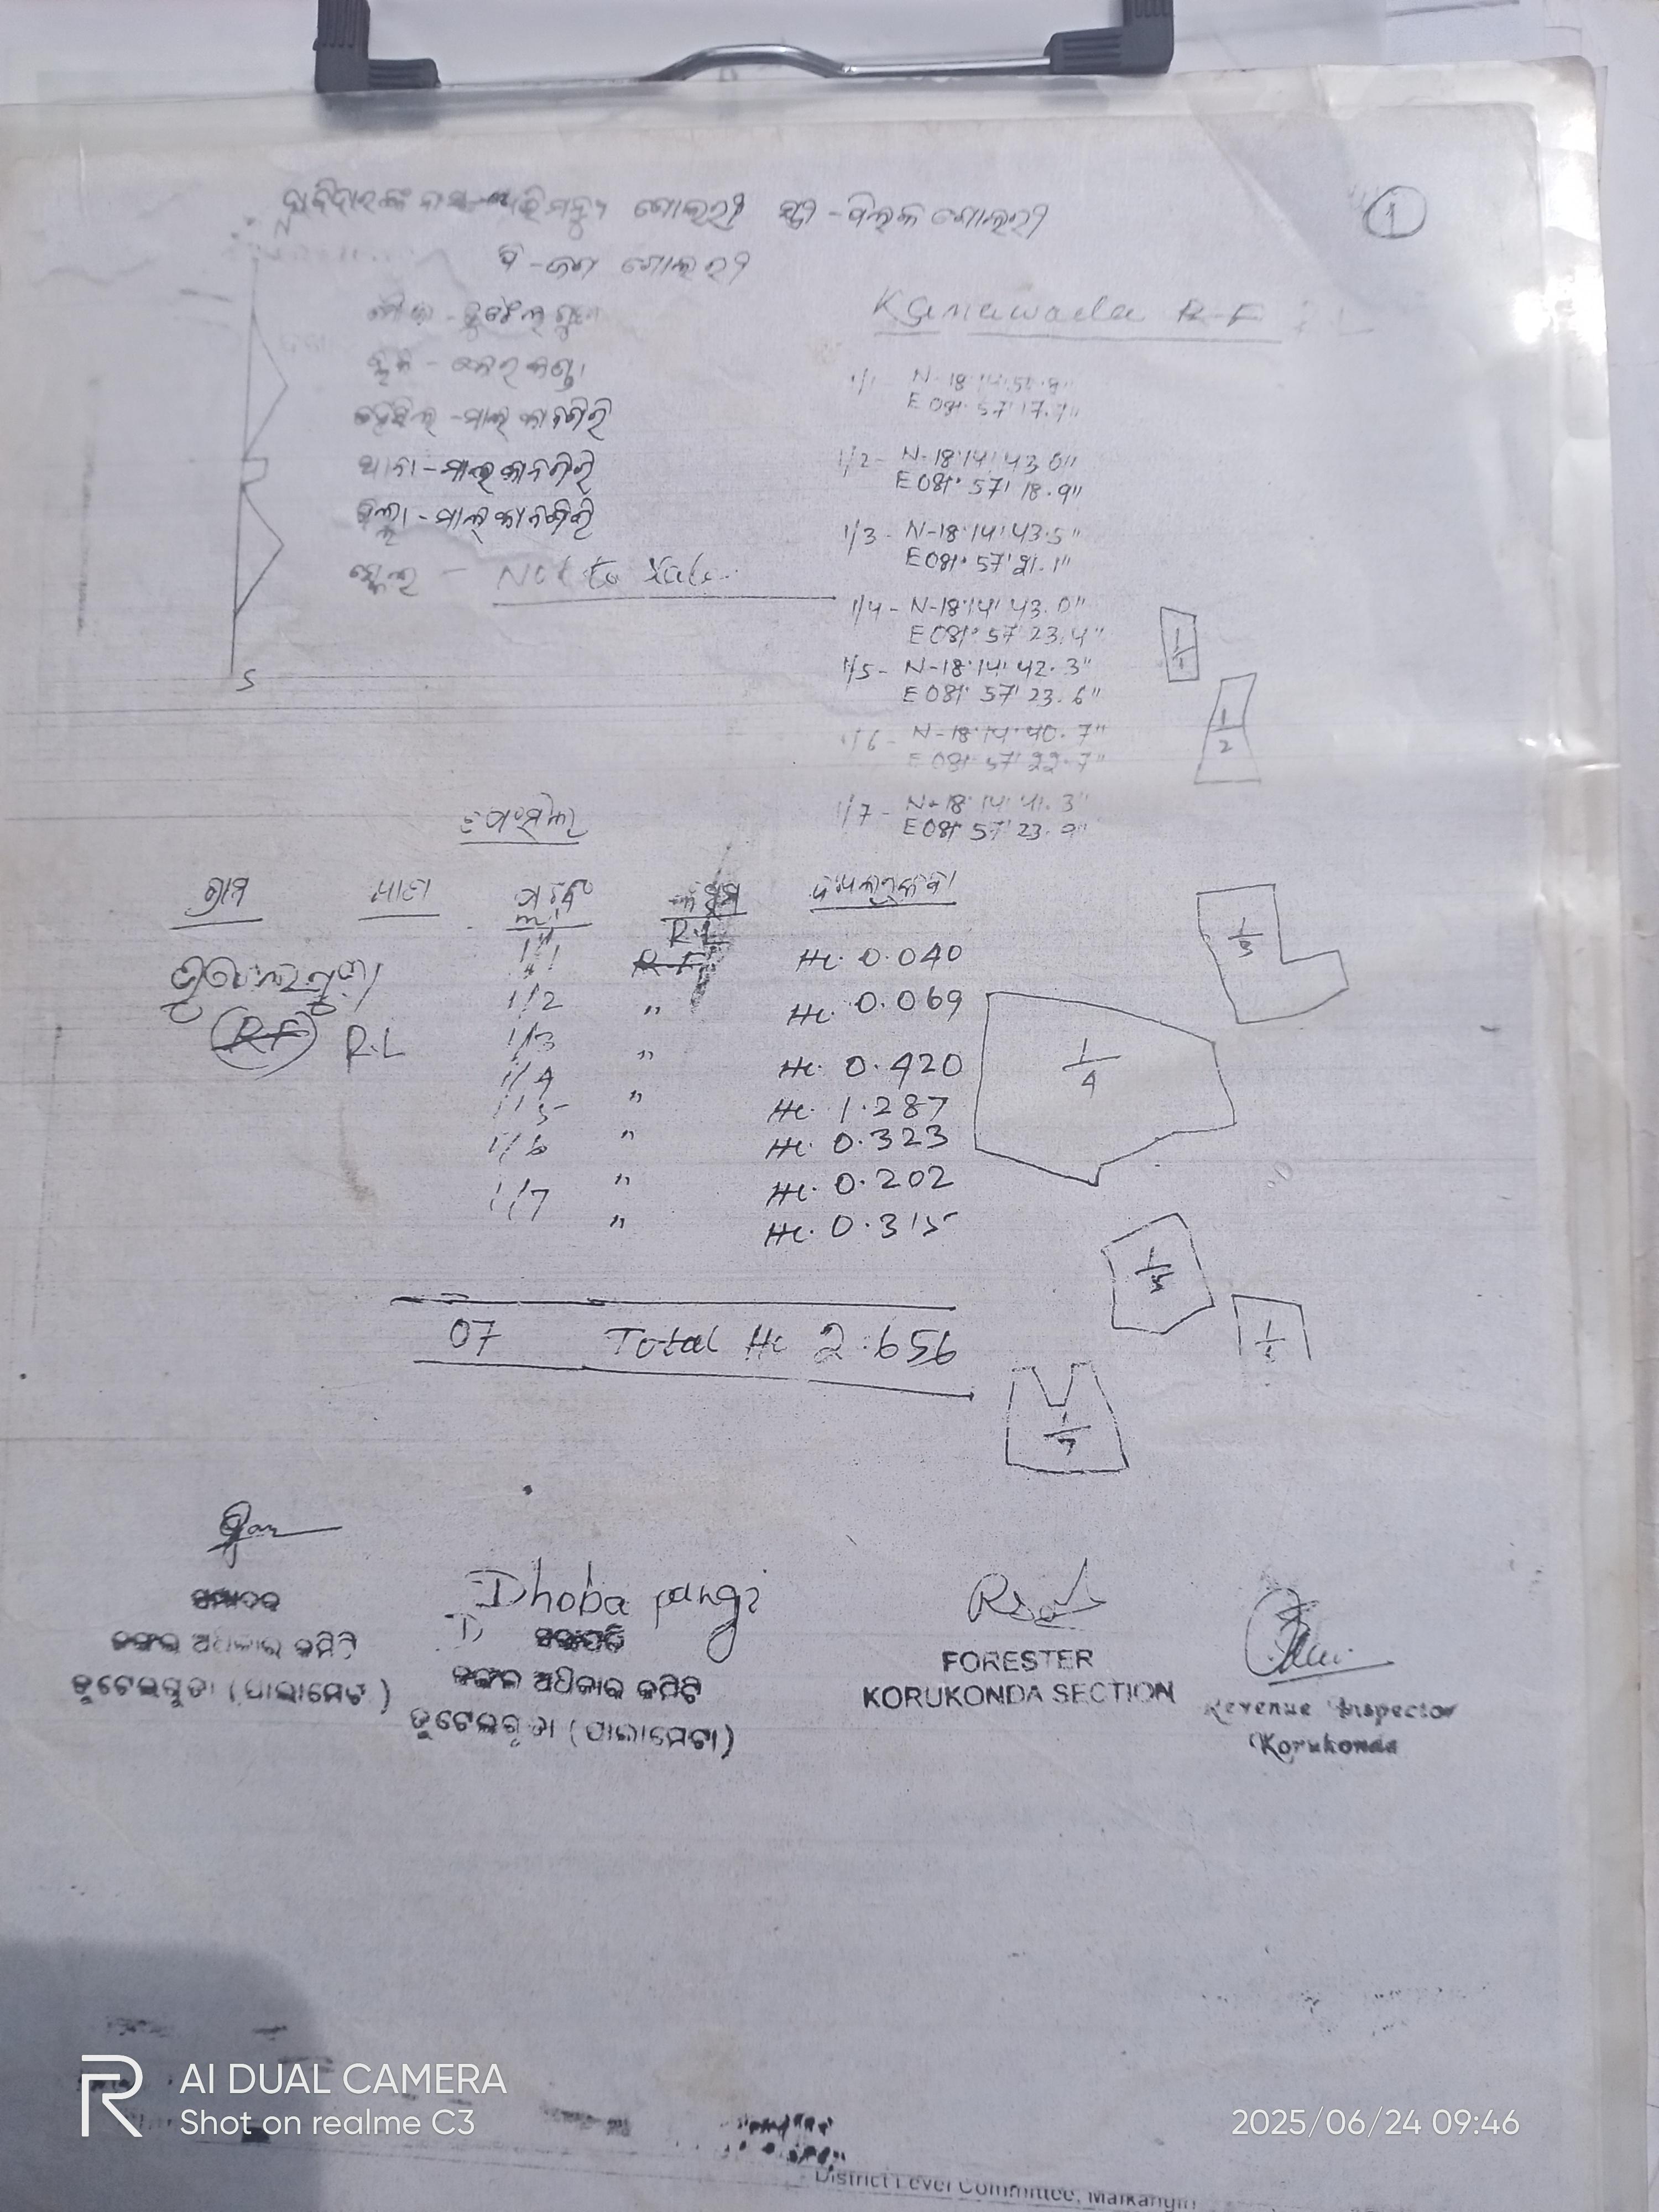 ଦାବିଦାରଙ୍କ ନାମ - ଅଭିମନ୍ୟୁ ଗୋଲରୀ ସ୍ତ୍ରୀ -
ପି - ଗୋଲରୀ
1
N
ମୌଜା -
R.F
ବ୍ଲକ -
ତହସିଲ - ମାଲକାନଗିରି
ଥାନା - ମାଲକାନଗିରି
ଜିଲ୍ଲା - ମାଲକାନଗିରି
ସ୍କେଲ - Not to Scale
S
1/1 N-18°14'
E 081° 57' 17.7"
1/2 - N-18°14' 43.0"
E 081° 57' 18.9"
1/3 - N-18°14' 43.5"
E 081° 57' 21.1"
1/4 - N-18°14' 43.0"
E 081° 57' 23.4"
1/5 - N-18°14' 42.3"
E 081° 57' 23.6"
1/6 - N-18°14' 40.7"
E 081° 57' 22.7"
1/7 - N-18°14' 41.3"
E 081° 57' 23.9"
1/1
1/2
ଗ୍ରାମ ଖାତା କିସମ
R.L
1/1 R.F Hc. 0.040
1/2 " Hc. 0.069
R.F R.L 1/3 " Hc. 0.420
1/4 " Hc. 1.287
1/5 " Hc. 0.323
1/6 " Hc. 0.202
1/7 " Hc. 0.315
1/3
1/4
1/5
07 Total Hc 2.656
1/7
Dhoba pangi
ଜଙ୍ଗଲ ଅଧିକାର କମିଟି
ଡୁଟେଲଗୁଡା (ପାଲାମେଟା)
ଜଙ୍ଗଲ ଅଧିକାର କମିଟି
ଡୁଟେଲଗୁଡା (ପାଲାମେଟା)
FORESTER
KORUKONDA SECTION
Revenue Inspector
Korukonda
AI DUAL CAMERA
Shot on realme C3
2025/06/24 09:46
District Level Committee, Malkangiri